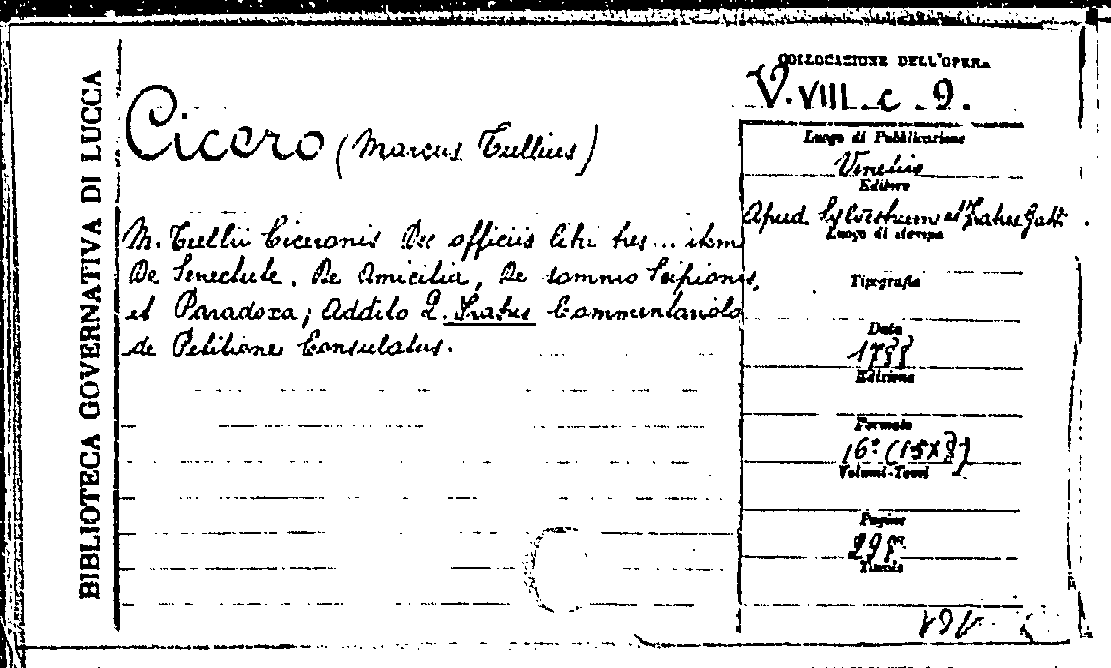 BIBLIOTECA GOVERNATIVA DI LUCCA
Cicero (Marcus Tullius)
M. Tullii Ciceronis De officiis libri tres... item
De Senectute, De Amicitia, De somnio Scipionis,
et Paradoxa; Addito Q. Fratris Commentariolo
de Petitione Consulatus.
COLLOCAZIONE DELL'OPERA
V. VIII. c. 9.
Luogo di Pubblicazione
Venetiis
Editore
Apud Sylvestrum
Luogo di stampa
Tipografia
Data
Edizione
Formato
16° (15x8)
Volumi-Tomi
Pagine
Tavole